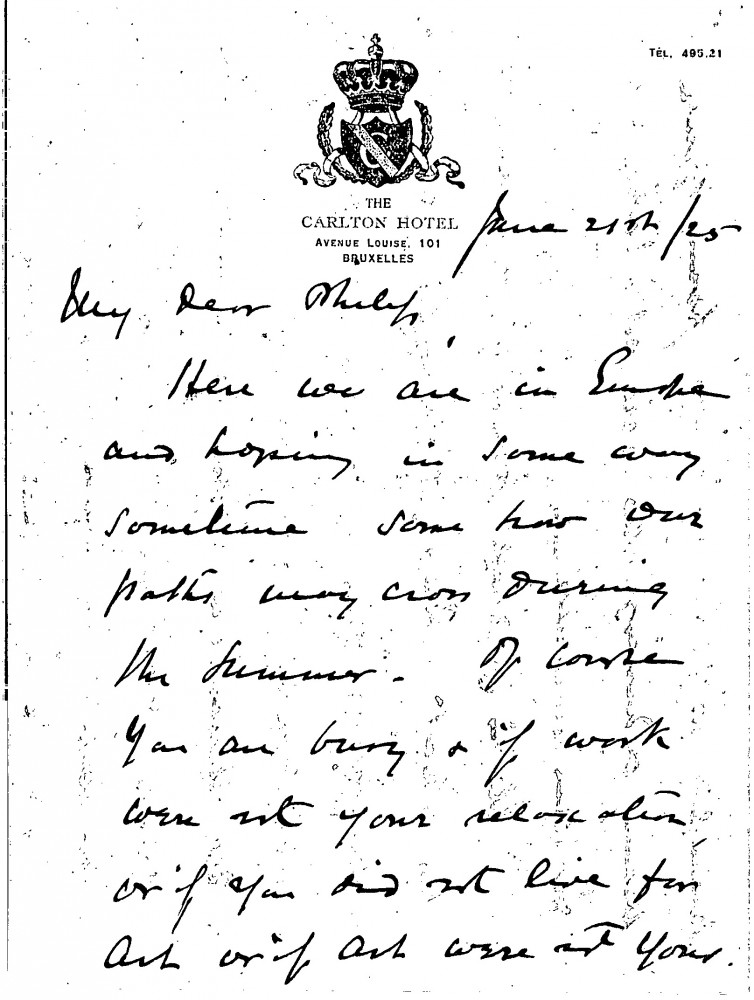 TÉL. 495.21
THE
CARLTON HOTEL
AVENUE LOUISE, 101
BRUXELLES
June 21st/25
My Dear Philip,
Here we are in Europe
and hoping in some way
sometime some how our
paths may cross during
the summer. Of course
you are busy & if work
were not your relaxation
or if you did not live for
Art or if Art were not your.